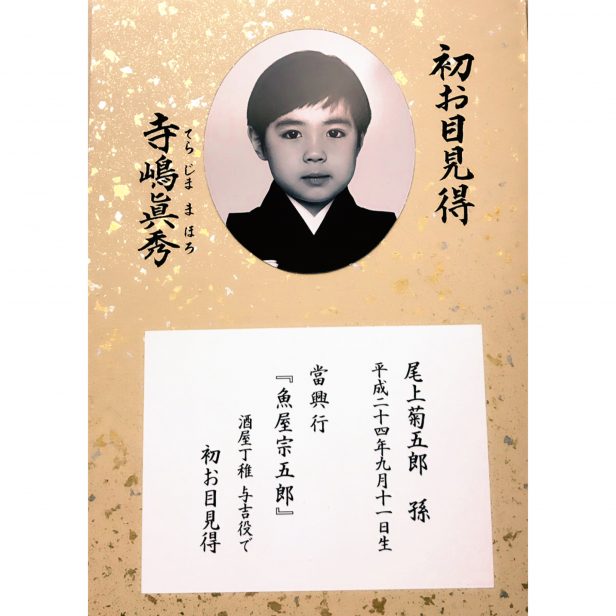 初お目見得
寺嶋眞秀
てらじま まほろ
尾上菊五郎 孫
平成二十四年九月十一日生
當興行
『魚屋宗五郎』
酒屋丁稚 与吉役で
初お目見得